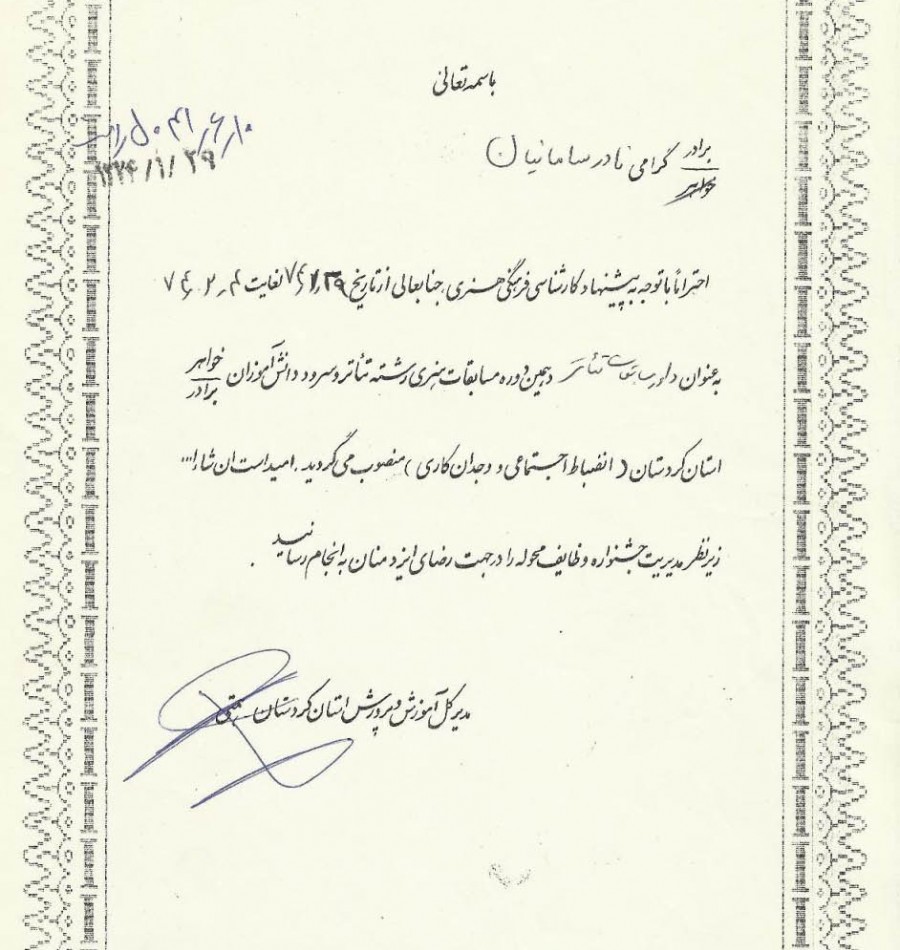 باسمه تعالی
۱۳۷۴/۱/۲۹
برادر
خواهر
گرامی نادر سامانیان
احتراماً با توجه به پیشنهاد کارشناسی فرهنگی هنری، جنابعالی از تاریخ ۷۴/۱/۲۹ لغایت ۷۴/۲/۴
به عنوان داور مسابقات تئاتر دهمین دوره مسابقات هنری رشته تئاتر و سرود دانش آموزان خواهر
برادر
استان کردستان ( انضباط اجتماعی و وجدان کاری ) منصوب می گردید . امید است ان شاءا...
زیر نظر مدیریت جشنواره وظایف محوله را در جهت رضای ایزد منان به انجام رسانید .
مدیر کل آموزش و پرورش استان کردستان